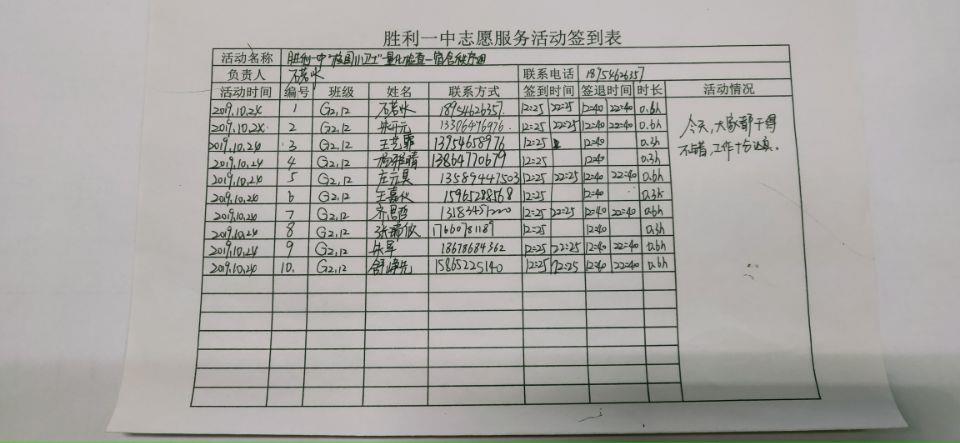 胜利一中志愿服务活动签到表
活动名称 胜利一中"校园小卫士"量化检查—宿舍秩序组
负责人 石若水 联系电话 18954626357
活动时间 编号 班级 姓名 联系方式 签到时间 签退时间 时长 活动情况
2019.10.24 1 G2,12 石若水 18954626357. 12:25 22:25 12:40 22:40 0.6h
2019.10.24. 2 G2,12 13306476976. 12:25 22:25 12:40 22:40 0.6h
2019.10.24 3 G2,12 13954658976 12:25 12:40 0.3h
2019.10.24 4 G2,12 13864770679 12:25 12:40 0.3h
2019.10.24 5 G2,12 庄元昊 13589447503 12:25 22:25 12:40 22:40 0.6h
2019.10.24 6 G2,12 15965288568 12:25 12:40 0.3h
2019.10.24 7 G2,12 齐思哲 12:25 22:25 12:40 22:40 0.6h
2019.10.24 8 G2,12 17660781187 12:25 12:40 0.3h
2019.10.24 9 G2,12 朱军 18678684362 12:25 22:25 12:40 22:40 0.6h
2019.10.24 10. G2,12 15865225140 12:25 22:25 12:40 22:40 0.6h
今天,大家都干得
不错,工作十分认真。